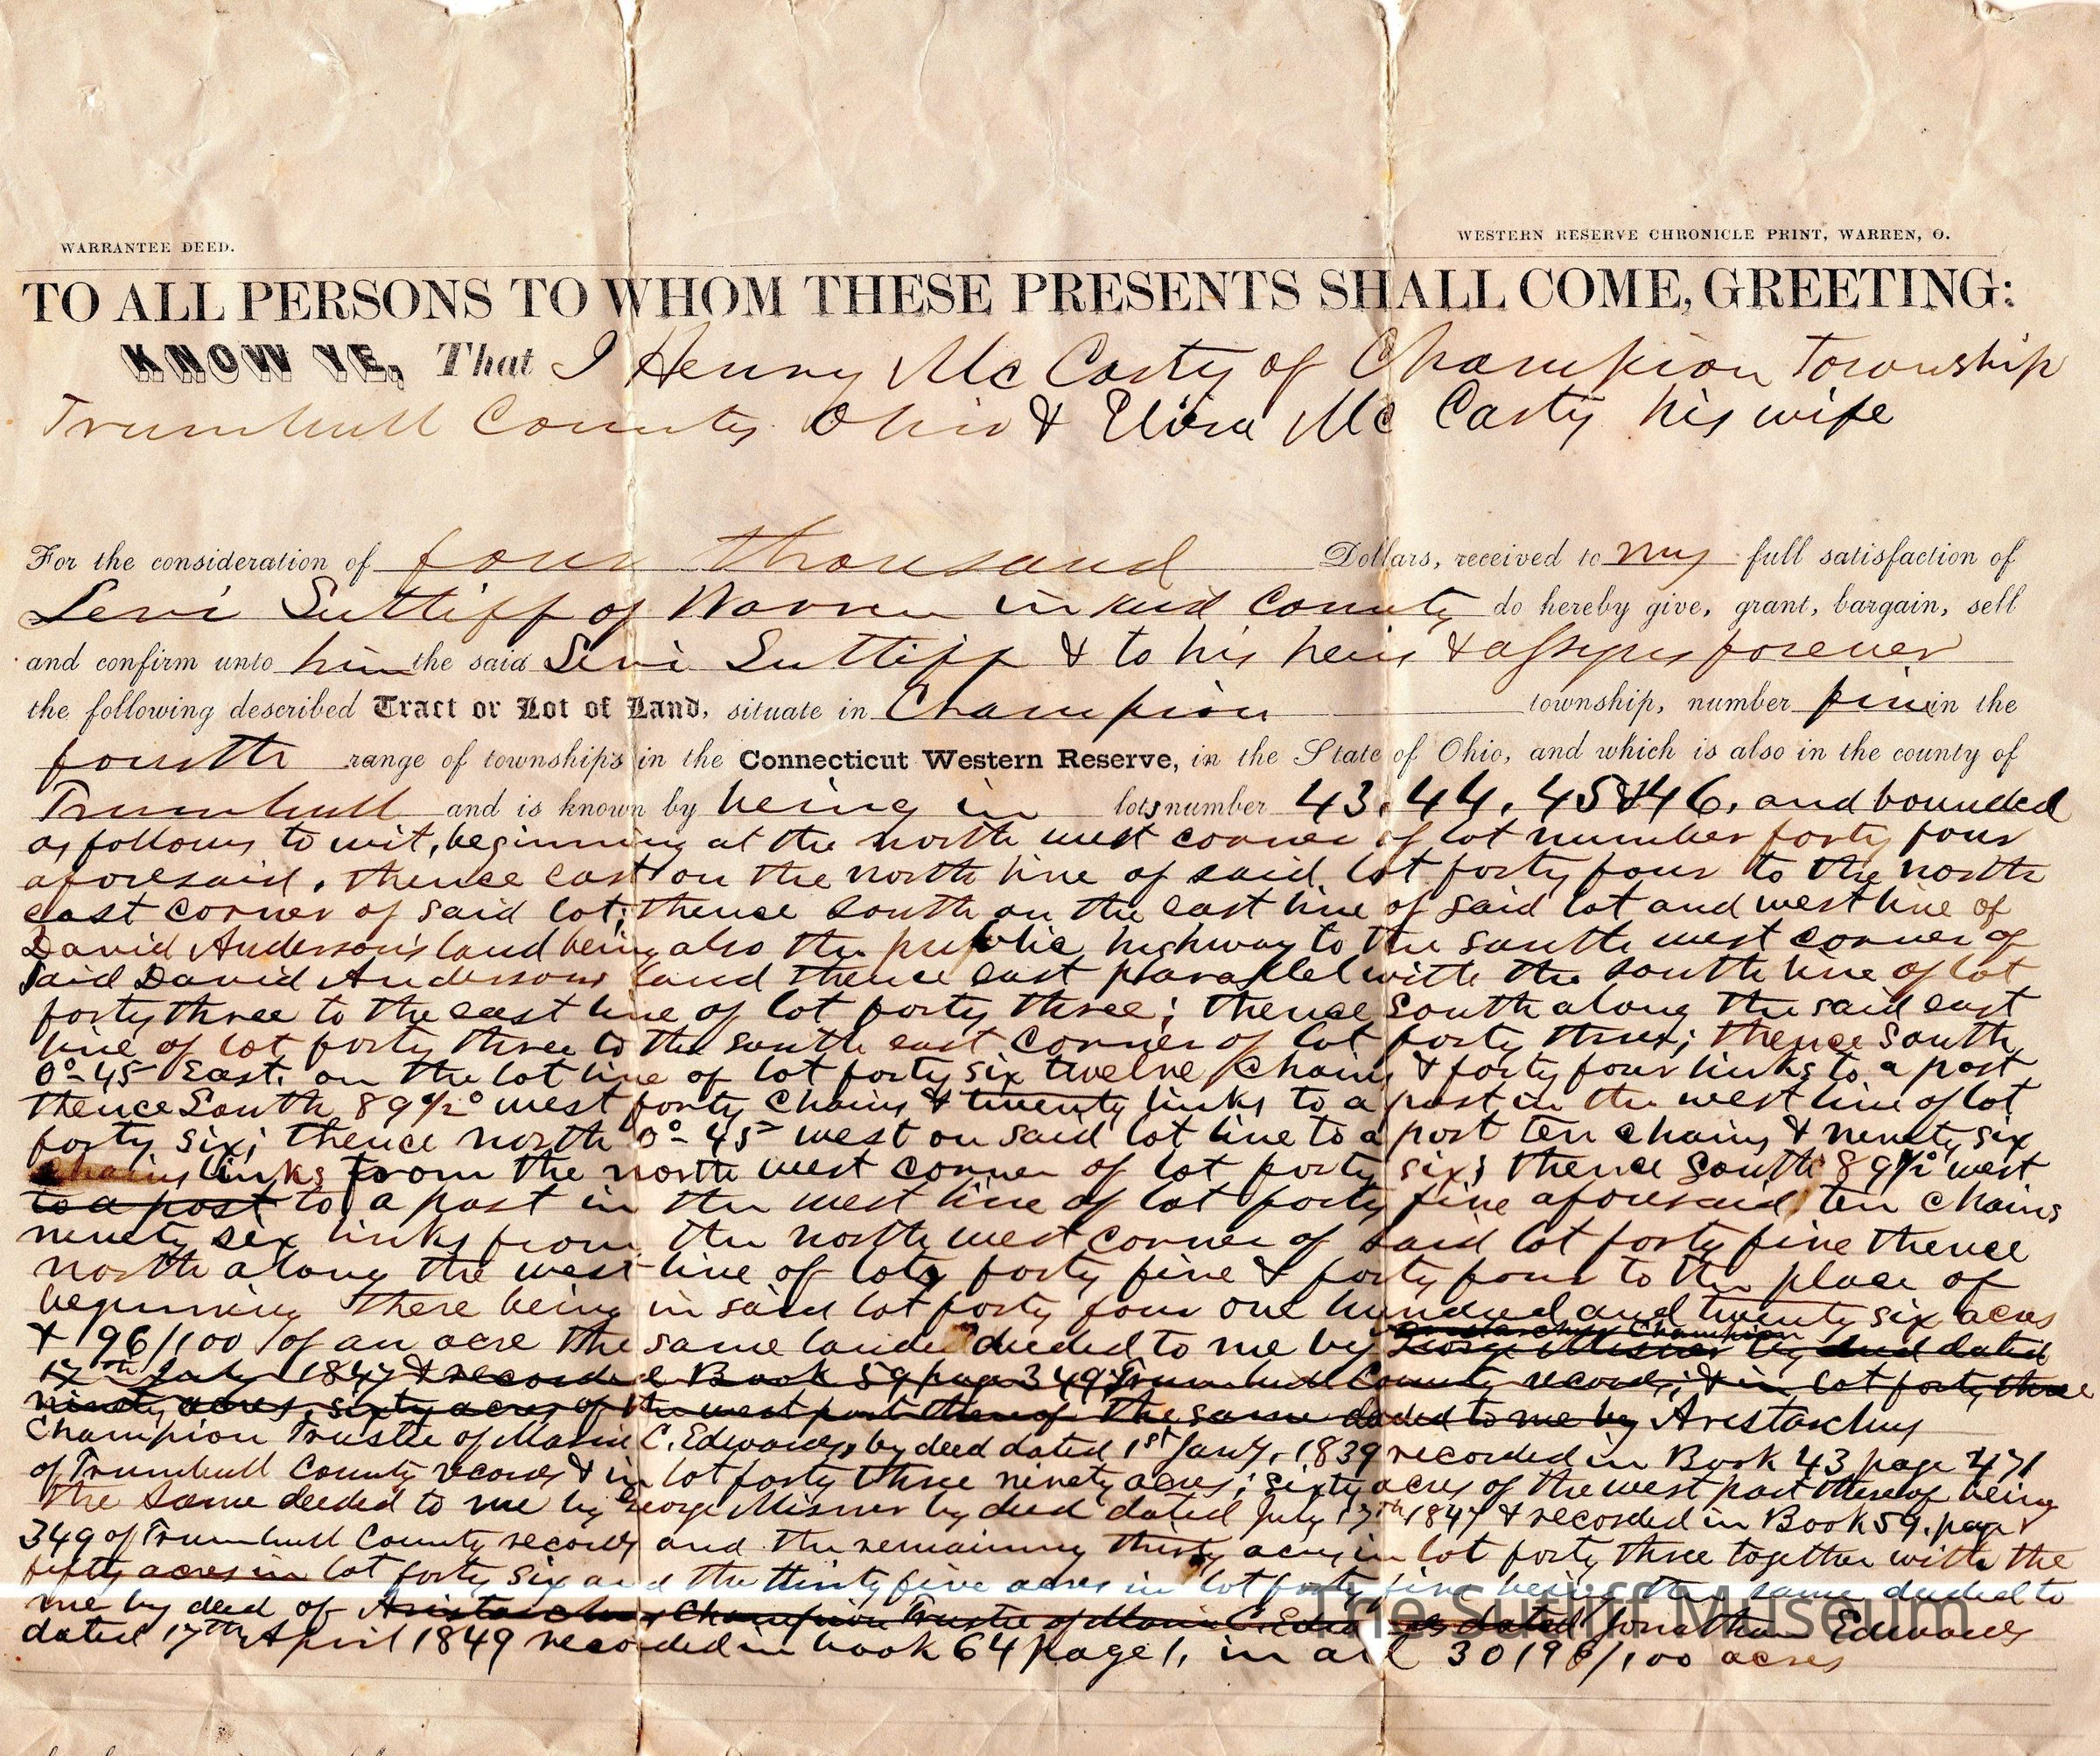 WARRANTEE DEED.
WESTERN RESERVE CHRONICLE PRINT, WARREN, O.
TO ALL PERSONS TO WHOM THESE PRESENTS SHALL COME, GREETING:
KNOW YE, That I Henry Mc Carty of Champion Township
Trumbull County Ohio & Elvira Mc Carty his wife
For the consideration of four thousand Dollars, received to my full satisfaction of
Levi Sutliff of Warren in said County do hereby give, grant, bargain, sell
and confirm unto him the said Levi Sutliff & to his heirs & assigns forever
the following described Tract or Lot of Land, situate in Champion township, number five in the
fourth range of townships in the Connecticut Western Reserve, in the State of Ohio, and which is also in the county of
Trumbull and is known by being in lots number 43, 44, 45 & 46, and bounded
as follows to wit, beginning at the north west corner of lot number forty four
aforesaid, thence east on the north line of said lot forty four to the north
east corner of said lot; thence south on the east line of said lot and west line of
David Anderson's land being also the public highway to the south west corner of
said David Andersons land thence east parallel with the south line of lot
forty three to the east line of lot forty three; thence South along the said east
line of lot forty three to the south east corner of lot forty three; thence South
0°-45 East on the lot line of lot forty six twelve Chains & forty four links to a post
thence South 89 1/2° west forty Chains & twenty links to a post in the west line of lot
forty six; thence north 0°-45 west on said lot line to a post ten chains & ninety six
chains links from the north west corner of lot forty six; thence South 89 1/2° west
to a post to a post in the west line of lot forty five aforesaid ten chains
ninety six links from the north west corner of said lot forty five thence
north along the west line of lots forty five & forty four to the place of
beginning there being in said lot forty four one hundred and twenty six acres
& 96/100 of an acre the same land deeded to me by George Misner by deed dated
Aristarchus Champion
17th July 1847 & recorded Book 59 page 349 Trumbull County records; & in lot forty three
ninety acres, sixty acres of the west part thereof the same deeded to me by Aristarchus
Champion Trustee of Maria C. Edwards, by deed dated 1st Jany, 1839 recorded in Book 43 page 471
of Trumbull County records & in lot forty three ninety acres; sixty acres of the west part thereof being
the same deeded to me by George Misner by deed dated July 17th 1847 & recorded in Book 59, page
349 of Trumbull County records and the remaining thirty acres in lot forty three together with the
fifty acres in lot forty six and the thirty five acres in lot forty five being the same deeded to
me by deed of Aristarchus Champion Trustee of Maria C. Edwards dated Jonathan Edwards
dated 17th April 1849 recorded in book 64 page 1, in all 301 96/100 acres
The Sutliff Museum